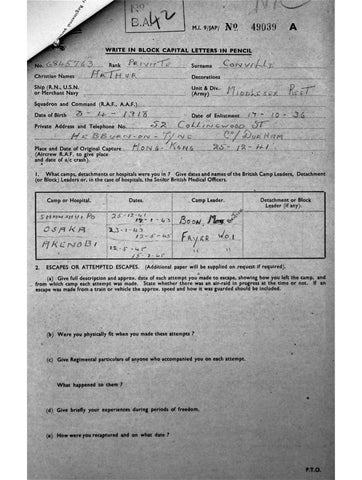 No
B.A42
M.I. 9/JAP/ No 49039 A
WRITE IN BLOCK CAPITAL LETTERS IN PENCIL
No. 6845763 Rank PRIVATE Surname CONVILLY
Christian Names ARTHUR Decorations
Ship (R.N., U.S.N. or Merchant Navy Unit & Div. (Army) MIDDLESEX REGT
Squadron and Command (R.A.F., A.A.F.)
Date of Birth 3-4-1918 Date of Enlistment 17-10-36
Private Address and Telephone No. 52 COLLINGWOOD ST
HEBBURN-ON-TYNE CO/DURHAM
Place and Date of Original Capture HONG-KONG 25-12-41
(Aircrew R.A.F. to give place and date of a/c crash).
1. What camps, detachments or hospitals were you in ? Give dates and names of the British Camp Leaders, Detachment (or Block) Leaders or, in the case of hospitals, the Senior British Medical Officers.
Camp or Hospital. Dates. Camp Leader. Detachment or Block Leader (if any).
25-12-41
1-43 BOON,
OSAKA 23-1-43
12-5-45 W.O.1
AKENOBI 12-5-45
2. ESCAPES OR ATTEMPTED ESCAPES. (Additional paper will be supplied on request if required).
(a) Give full description and approx. date of each attempt you made to escape, showing how you left the camp, and from which camp each attempt was made. State whether there was an air-raid in progress at the time or not. If an escape was made from a train or vehicle the approx. speed and how it was guarded should be included.
(b) Were you physically fit when you made these attempts ?
(c) Give Regimental particulars of anyone who accompanied you on each attempt.
What happened to them ?
(d) Give briefly your experiences during periods of freedom.
(e) How were you recaptured and on what date ?
P.T.O.